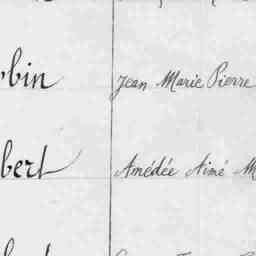 bin Jean Marie Pierre
bert Amédée Aimé M